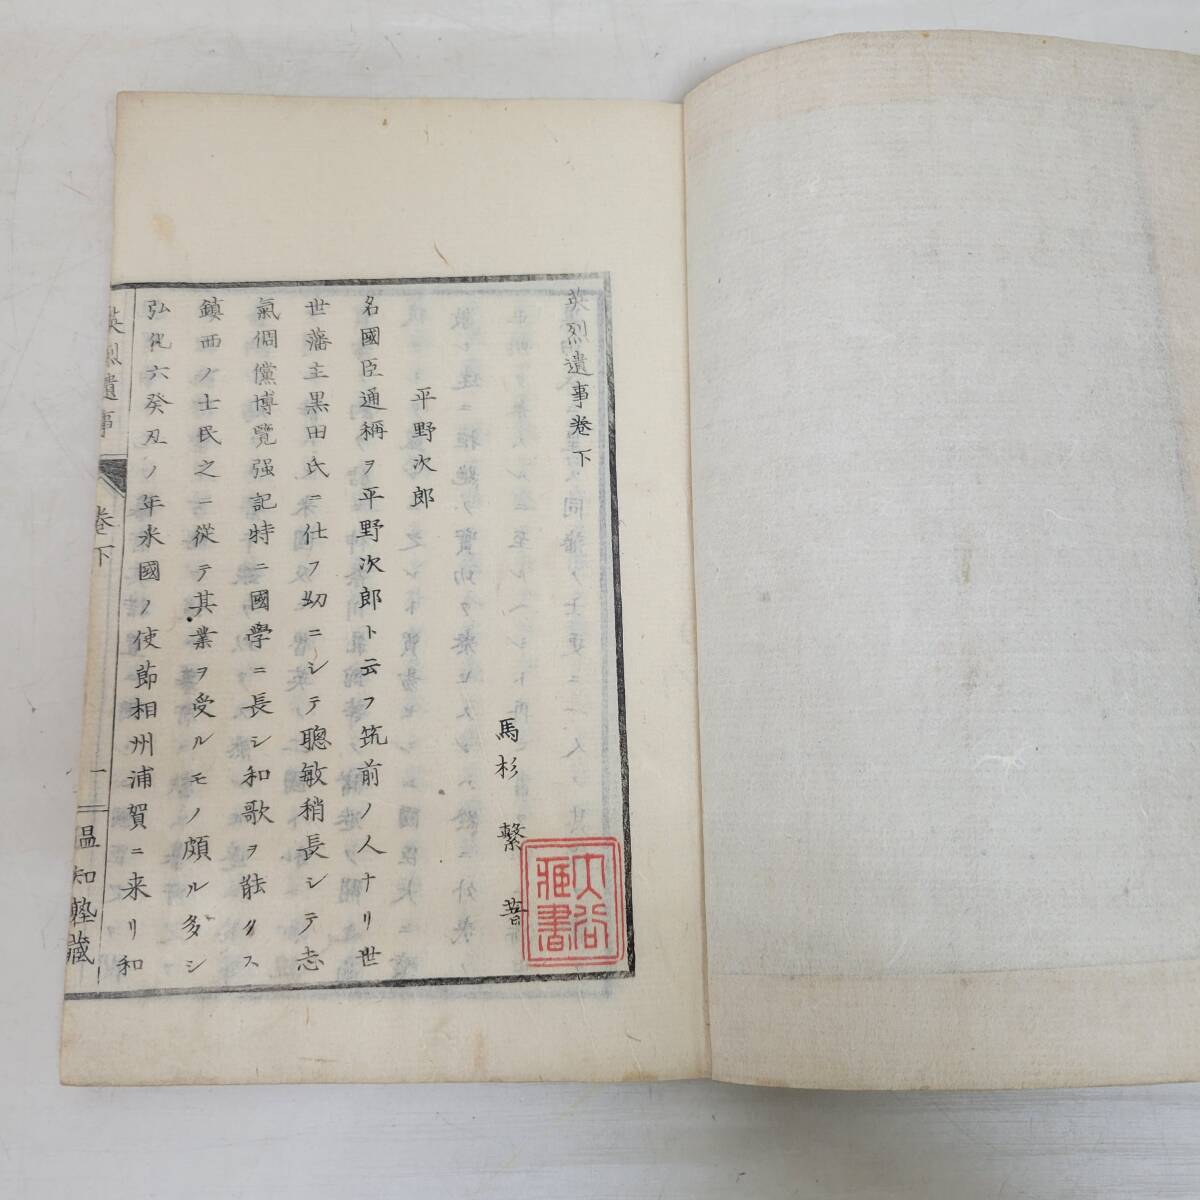 英烈遺事卷下
馬杉繫著
平野次郎
名國臣通稱ヲ平野次郎ト云フ筑前ノ人ナリ世
世藩主黒田氏ニ仕フ幼ニシテ聰敏稍長シテ志
氣倜儻博覽强記特ニ國學ニ長シ和歌ヲ能クス
鎮西ノ士民之ニ從テ其業ヲ受ルモノ頗ル多シ
弘化六癸丑ノ年米國ノ使節相州浦賀ニ来リ和
英烈遺事
卷下
一
温知塾藏
大谷藏書